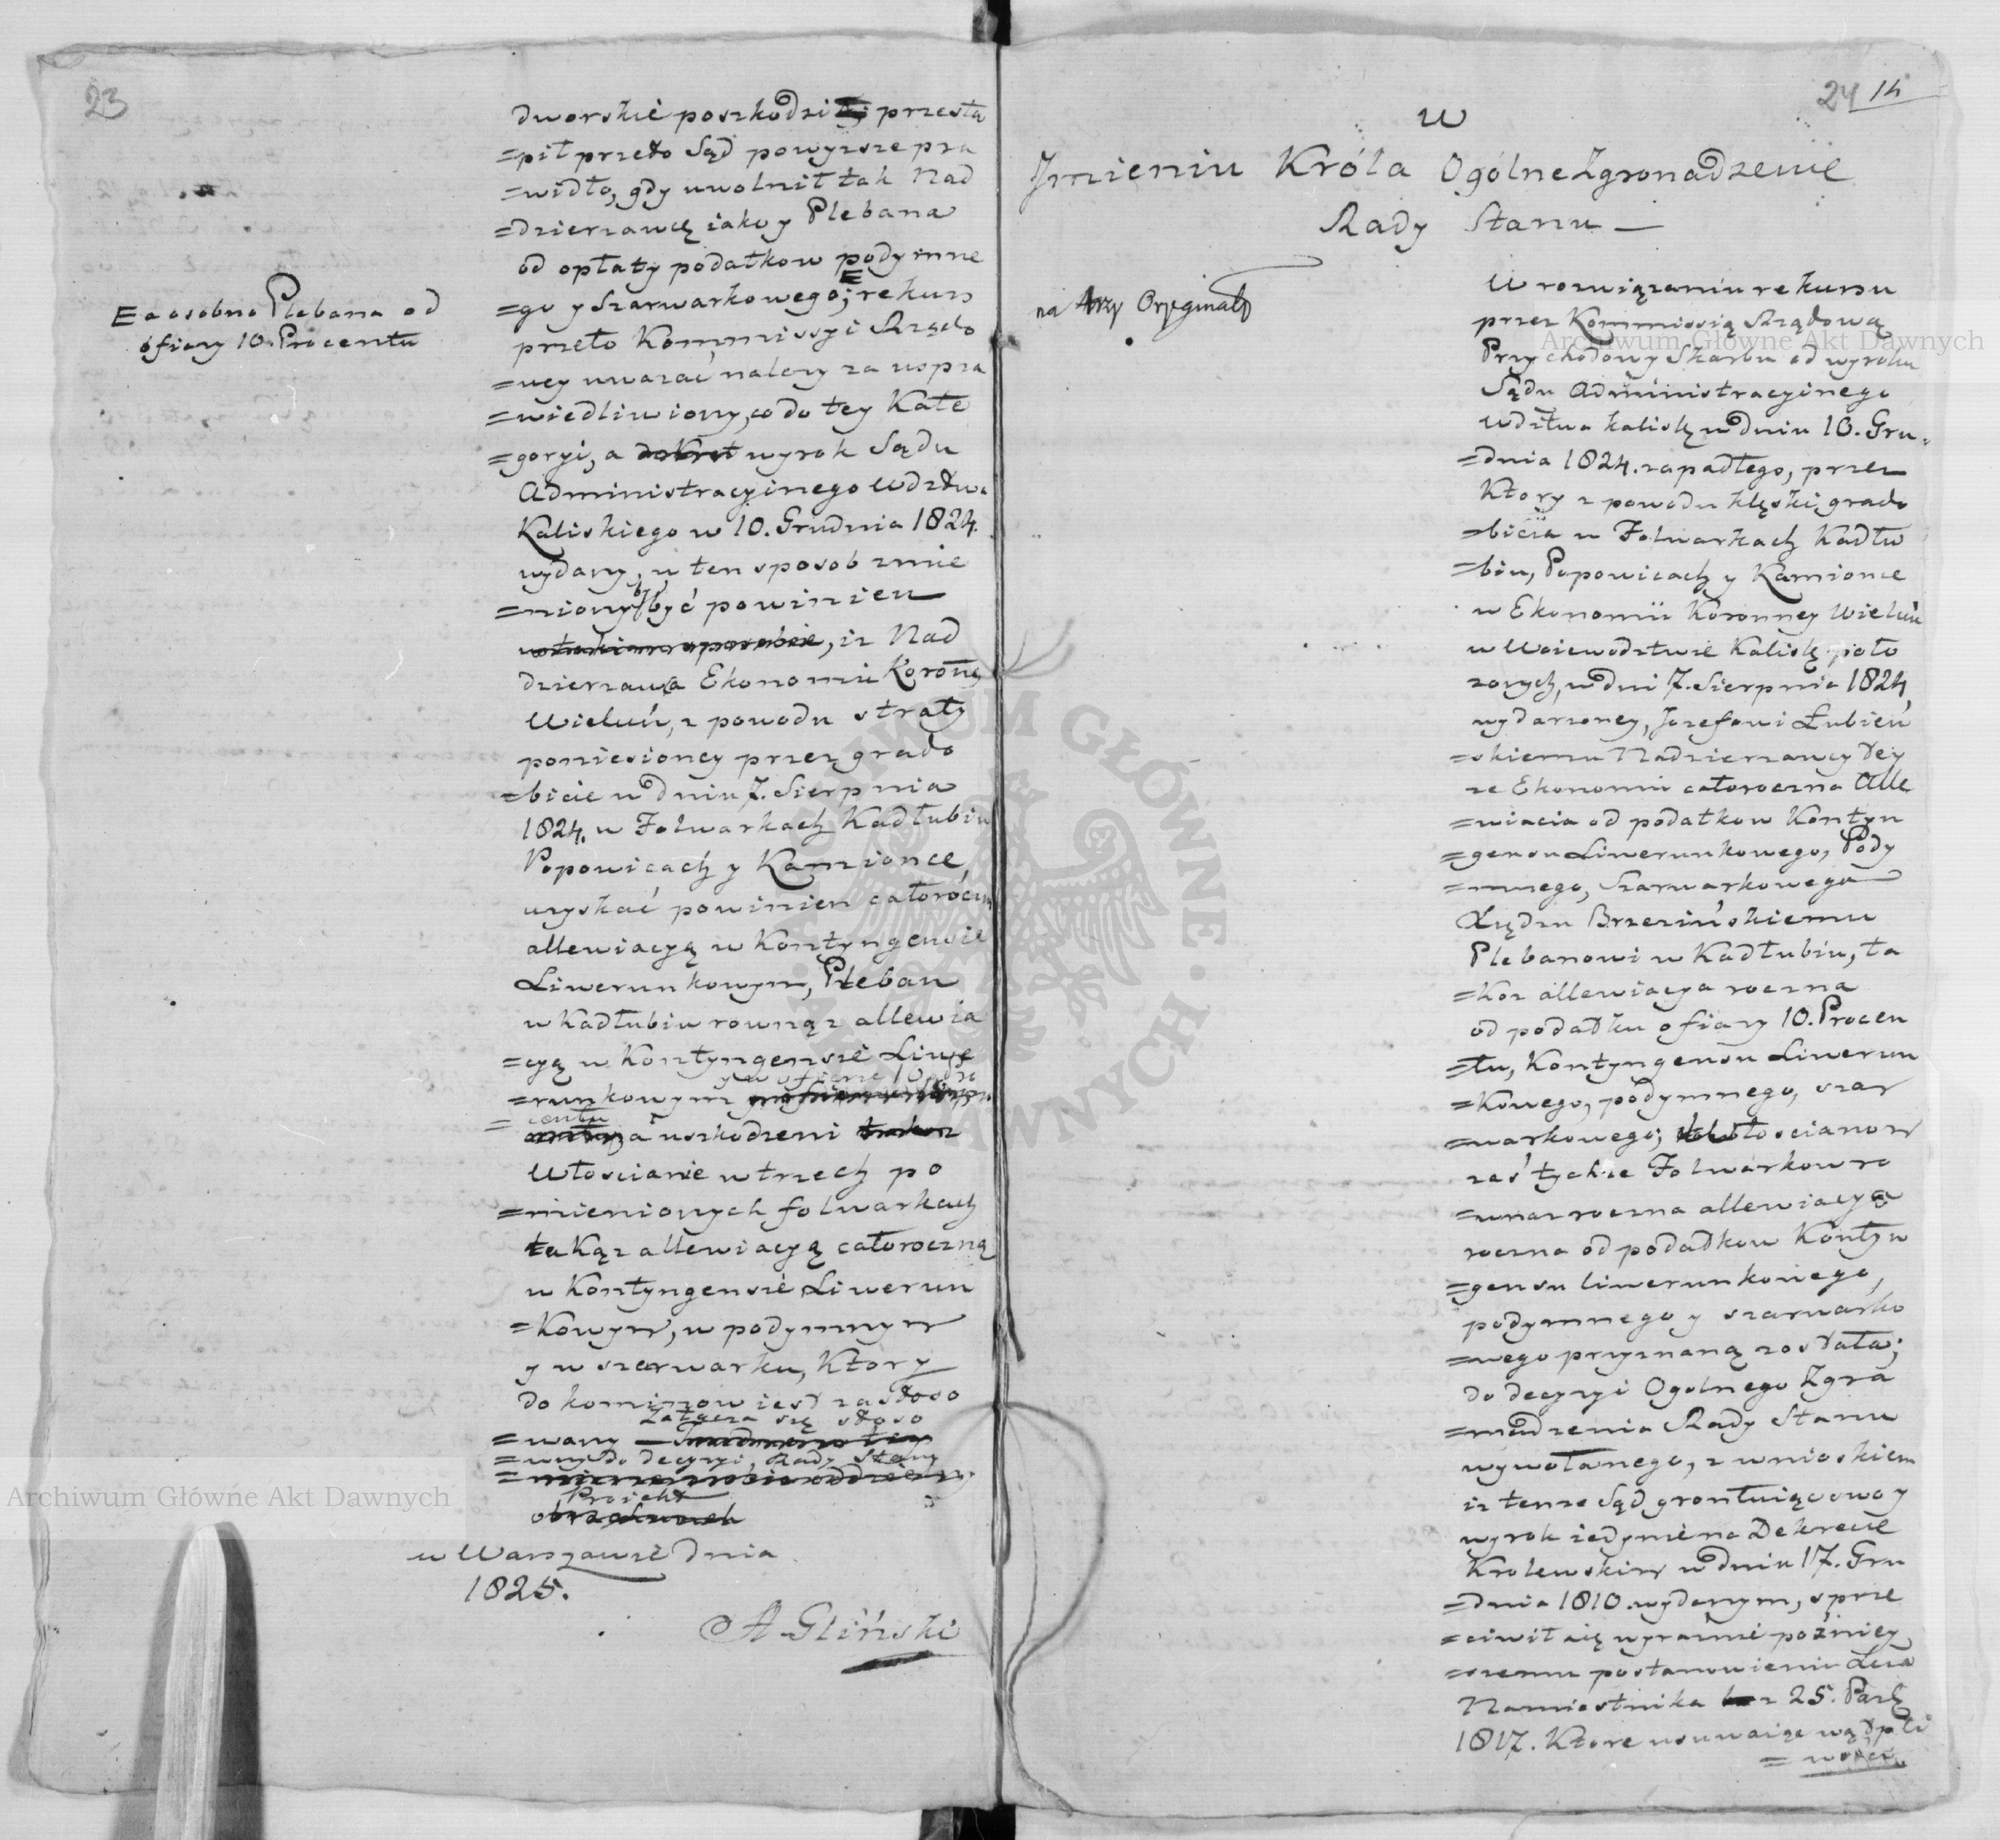 23
dworskie poszkodzi przestą
=pił przeto Sąd powyższe pra
=widło, gdy uwolnił tak Nad
=dzierzawcę iako y Plebana
od opłaty podatkow podymne
=go y Szarwarkowego; E rekurs
E a osobno Plebana od
ofiary 10. Procentu
przeto Kommissyi Rządo
=wey uważać należy za uspra
=wiedliwiony, co do tey Kate
=goryi, a wyrok Sądu
Administracyinego Wdztwa
Kaliskiego w 10. Grudnia 1824.
wydany, w ten sposob zmie
=niony być powinien
iż Nad
dzierzawca Ekonomii Koronney
Wieluń, z powodu straty
poniesioney przez grado
=bicie w dniu 7. Sierpnia
1824. w Folwarkach Kadłubiu
Popowicach y Kamionce,
uzyskać powinien całoroczną
allewiacyą w Kontyngensie
Liwerunkowym, Pleban
w Kadłubiu rownąż allewia
=cyą w Kontyngensie Liwe
y w ofierze 10 pro
=runkowym
=centu
a uszkodzeni
Włoscianie w trzech po
=mienionych folwarkach
takąż allewiacyą całoroczną
w Kontyngensie Liwerun
=kowym, w podymnym
y w szarwarku, Ktory
do kominow iest zastoso
=wany załącza się stoso
=wny do decyzyi, Rady Stanu
Proiekt
w Warszawie Dnia
1825.
A Gliński
24 14
W
Imieniu Króla Ogólne Zgromadzenie
Rady Stanu —
na trzy Oryginały
W rozwiązaniu rekursu
przez Kommissią Rządową
Przychodow y Skarbu od wyroku
Sądu Administracyinego
Wdztwa Kalisk w dniu 10. Gru=
=dnia 1824. zapadłego, przez
Ktory z powodu klęski grado
=bicia w Folwarkach Kadłu
=biu, Popowicach y Kamionce
w Ekonomii Koronney Wieluń
w Woiewodztwie Kalisk poło
zonych, w dni 7. Sierpnia 1824,
wydarzoney, Jozefowi Łubień
=skiemu Nadzierzawcy tey
ze Ekonomii całoroczna Alle
=wiacia od podatkow Kontyn
=gensu Liwerunkowego, Pody
=mnego, Szarwarkowego
Xiędzu Brzezińskiemu
Plebanowi w Kadłubiu, ta
=koz allewiacya roczna
od podatku ofiary 10. Procen
=tu, Kontyngensu Liwerun
=kowego, podymnego, szar
=warkowego; włoscianow
zaś tychze Folwarkow ro
=wnaz roczna allewiacya
roczna od podatkow Kontyn
=gensu liwerunkowego,
podymnego y szarwarko
=wego przyznaną została;
do decyzyi Ogolnego Zgro
=madzenia Rady Stanu
wywołanego, z wnioskiem
iz tenze Sąd gruntuiąc swoy
wyrok iedynie na Dekrecie
Krolewskim w dniu 17. Gru
=dnia 1810. wydanym, sprze
=ciwił się wyraźnie poźniey
=szemu postanowieniu Xcia
Namiestnika z 25. Paźd
1817. Ktore usuwaiąc wątpli
=wość